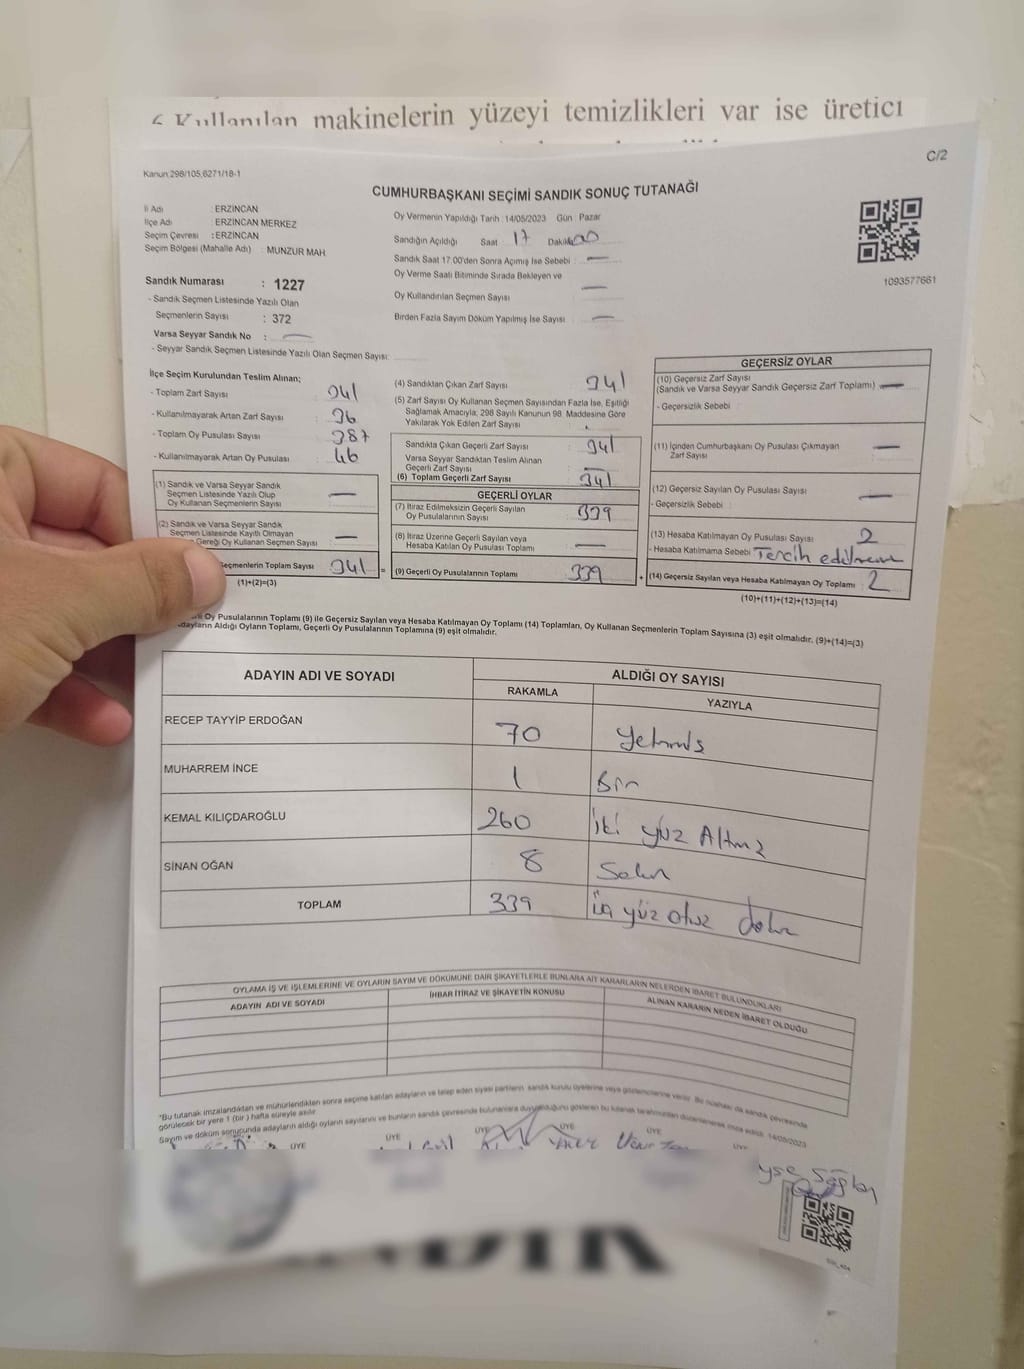 makinelerin yüzeyi temizlikleri var ise üretici
C/2
Kanun:298/105,6271/18-1
CUMHURBAŞKANI SEÇİMİ SANDIK SONUÇ TUTANAĞI
İl Adı : ERZİNCAN
İlçe Adı : ERZİNCAN MERKEZ
Seçim Çevresi : ERZİNCAN
Seçim Bölgesi (Mahalle Adı) : MUNZUR MAH
Oy Vermenin Yapıldığı Tarih :14/05/2023 Gün : Pazar
Sandığın Açıldığı Saat 17 Dakika 00
Sandık Saat 17:00'den Sonra Açımış İse Sebebi : —
Oy Verme Saati Bitiminde Sırada Bekleyen ve
Oy Kullandırılan Seçmen Sayısı —
Birden Fazla Sayım Döküm Yapılmış İse Sayısı : —
1093577661
Sandık Numarası : 1227
- Sandık Seçmen Listesinde Yazılı Olan
Seçmenlerin Sayısı : 372
Varsa Seyyar Sandık No : —
- Seyyar Sandık Seçmen Listesinde Yazılı Olan Seçmen Sayısı:
İlçe Seçim Kurulundan Teslim Alınan;
- Toplam Zarf Sayısı : 341
- Kullanılmayarak Artan Zarf Sayısı : 36
- Toplam Oy Pusulası Sayısı : 387
- Kullanılmayarak Artan Oy Pusulası : 46
(1) Sandık ve Varsa Seyyar Sandık
Seçmen Listesinde Yazılı Olup
Oy Kullanan Seçmenlerin Sayısı —
(2) Sandık ve Varsa Seyyar Sandık
Seçmen Listesinde Kayıtlı Olmayan
Gereği Oy Kullanan Seçmen Sayısı —
Seçmenlerin Toplam Sayısı 341 =
(1)+(2)=(3)
(4) Sandıktan Çıkan Zarf Sayısı : 341
(5) Zarf Sayısı Oy Kullanan Seçmen Sayısından Fazla İse, Eşitliği
Sağlamak Amacıyla; 298 Sayılı Kanunun 98. Maddesine Göre
Yakılarak Yok Edilen Zarf Sayısı :
Sandıkta Çıkan Geçerli Zarf Sayısı : 341
Varsa Seyyar Sandıktan Teslim Alınan
Geçerli Zarf Sayısı : —
(6) Toplam Geçerli Zarf Sayısı : 341
GEÇERLİ OYLAR
(7) İtiraz Edilmeksizin Geçerli Sayılan
Oy Pusulalarının Sayısı : 339
(8) İtiraz Üzerine Geçerli Sayılan veya
Hesaba Katılan Oy Pusulası Toplamı : —
(9) Geçerli Oy Pusulalarının Toplamı : 339 +
GEÇERSİZ OYLAR
(10) Geçersiz Zarf Sayısı
(Sandık ve Varsa Seyyar Sandık Geçersiz Zarf Toplamı) : —
- Geçersizlik Sebebi :
(11) İçinden Cumhurbaşkanı Oy Pusulası Çıkmayan
Zarf Sayısı : —
(12) Geçersiz Sayılan Oy Pusulası Sayısı : —
- Geçersizlik Sebebi :
(13) Hesaba Katılmayan Oy Pusulası Sayısı : 2
- Hesaba Katılmama Sebebi : Tercih
(14) Geçersiz Sayılan veya Hesaba Katılmayan Oy Toplamı : 2
(10)+(11)+(12)+(13)=(14)
Oy Pusulalarının Toplamı (9) ile Geçersiz Sayılan veya Hesaba Katılmayan Oy Toplamı (14) Toplamları, Oy Kullanan Seçmenlerin Toplam Sayısına (3) eşit olmalıdır. (9)+(14)=(3)
Aldığı Oyların Toplamı, Geçerli Oy Pusulalarının Toplamına (9) eşit olmalıdır.
ADAYIN ADI VE SOYADI ALDIĞI OY SAYISI
RAKAMLA YAZIYLA
RECEP TAYYİP ERDOĞAN 70 Yetmiş
MUHARREM İNCE 1 Bir
KEMAL KILIÇDAROĞLU 260 İki yüz Altmış
SİNAN OĞAN 8 Sekiz
TOPLAM 339 üç yüz otuz dokuz
OYLAMA İŞ VE İŞLEMLERİNE VE OYLARIN SAYIM VE DÖKÜMÜNE DAİR ŞİKAYETLERLE BUNLARA AİT KARARLARIN NELERDEN İBARET BULUNDUKLARI
ADAYIN ADI VE SOYADI İHBAR İTİRAZ VE ŞİKAYETİN KONUSU ALINAN KARARIN NEDEN İBARET OLDUĞU
*Bu tutanak imzalandıktan ve mühürlendikten sonra seçime katılan adayların ve talep eden siyasi partilerin sandık kurulu üyelerine veya gözlemcilerine verilir. Bu nüshası da sandık çevresinde
görülecek bir yere 1 (bir) hafta süreyle asılır.
Sayım ve döküm sonucunda adayların aldığı oyların sayılarını ve bunların sandık çevresinde bulunanlara duyurulduğunu gösteren bu tutanak tarafımızdan düzenlenerek imza edildi. 14/05/2023
ÜYE ÜYE ÜYE ÜYE ÜYE ÜYE